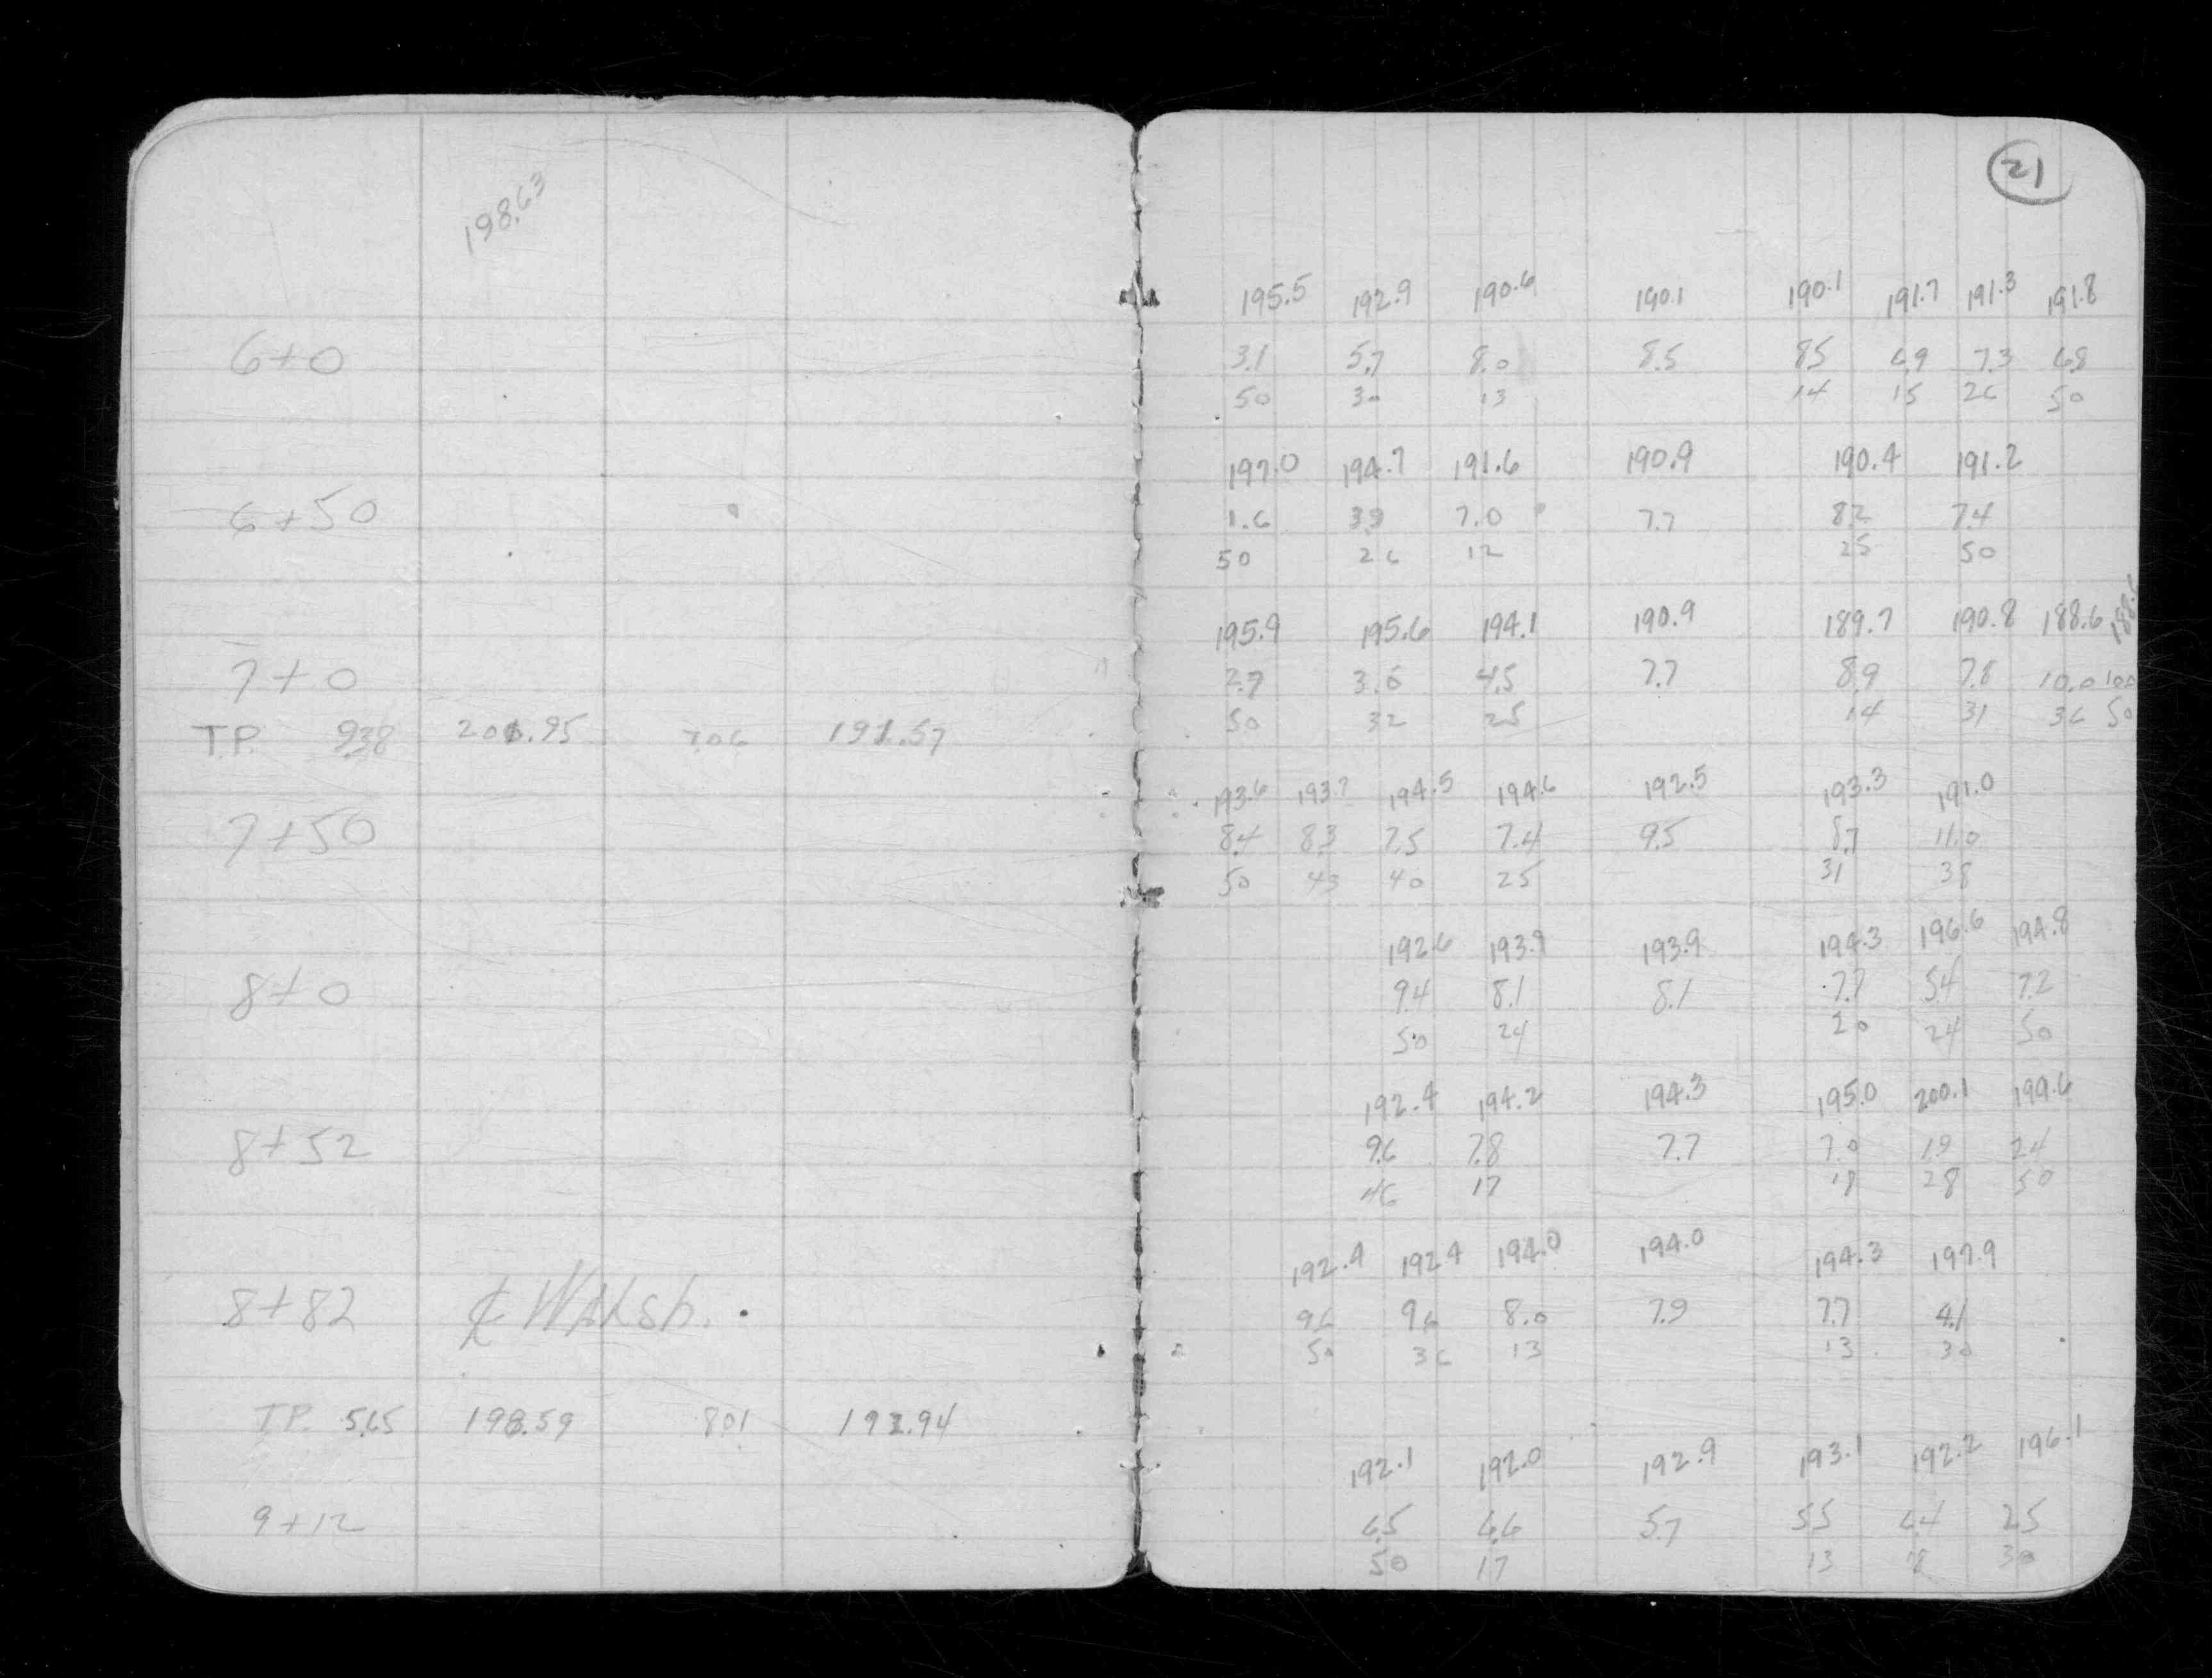 198.63
21
195.5 192.9 190.6 190.1 190.1 191.7 191.3 191.8
6+0 3.1 5.7 8.0 8.5 8.5 6.9 7.3 6.8
50 30 13 14 15 26 50
197.0 194.7 191.6 190.9 190.4 191.2
6+50 1.6 3.9 7.0 7.7 8.2 7.4
50 26 12 25 50
195.9 195.6 194.1 190.9 189.7 190.8 188.6
7+0 2.7 3.0 4.5 7.7 8.9 7.8 10.0 10.0
50 32 25 14 31 36 50
T.P. 9.38 200.95 7.06 191.57
193.6 193.7 194.5 194.6 192.5 193.3 191.0
7+50 8.4 8.3 7.5 7.4 9.5 8.7 11.0
50 43 40 25 31 38
192.6 193.9 193.9 194.3 196.6 194.8
8+0 9.4 8.1 8.1 7.7 5.4 7.2
50 24 20 24 50
192.4 194.2 194.3 195.0 200.1 199.6
8+52 9.6 7.8 7.7 7.0 1.9 2.4
46 17 18 28 50
192.4 192.4 194.0 194.0 194.3 197.9
8+82 ℄ Walsh. 9.6 9.6 8.0 7.9 7.7 4.1
50 36 13 13 30
T.P. 5.65 198.59 8.01 192.94
192.1 192.0 192.9 193.1 192.2 196.1
9+12 6.5 6.6 5.7 5.5 6.4 2.5
50 17 13 18 30